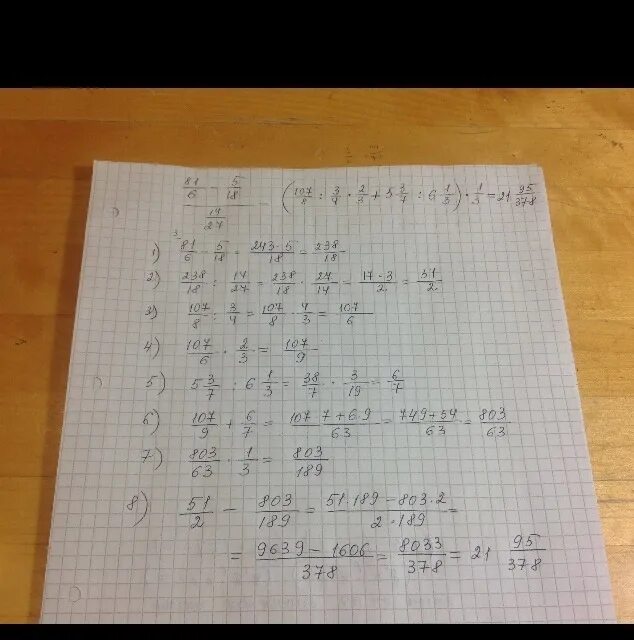 (81/6 - 5/18) / (14/27) - (107/8 : 3/4 · 2/3 + 5 3/7 : 6 1/3) · 1/3 = 21 95/378
1) 81/6 - 5/18 = (243 - 5)/18 = 238/18
2) 238/18 : 14/27 = 238/18 · 27/14 = (17 · 3)/2 = 51/2
3) 107/8 : 3/4 = 107/8 · 4/3 = 107/6
4) 107/6 · 2/3 = 107/9
5) 5 3/7 : 6 1/3 = 38/7 · 3/19 = 6/7
6) 107/9 + 6/7 = (107 · 7 + 6 · 9)/63 = (749 + 54)/63 = 803/63
7) 803/63 · 1/3 = 803/189
8) 51/2 - 803/189 = (51 · 189 - 803 · 2)/(2 · 189) =
= (9639 - 1606)/378 = 8033/378 = 21 95/378